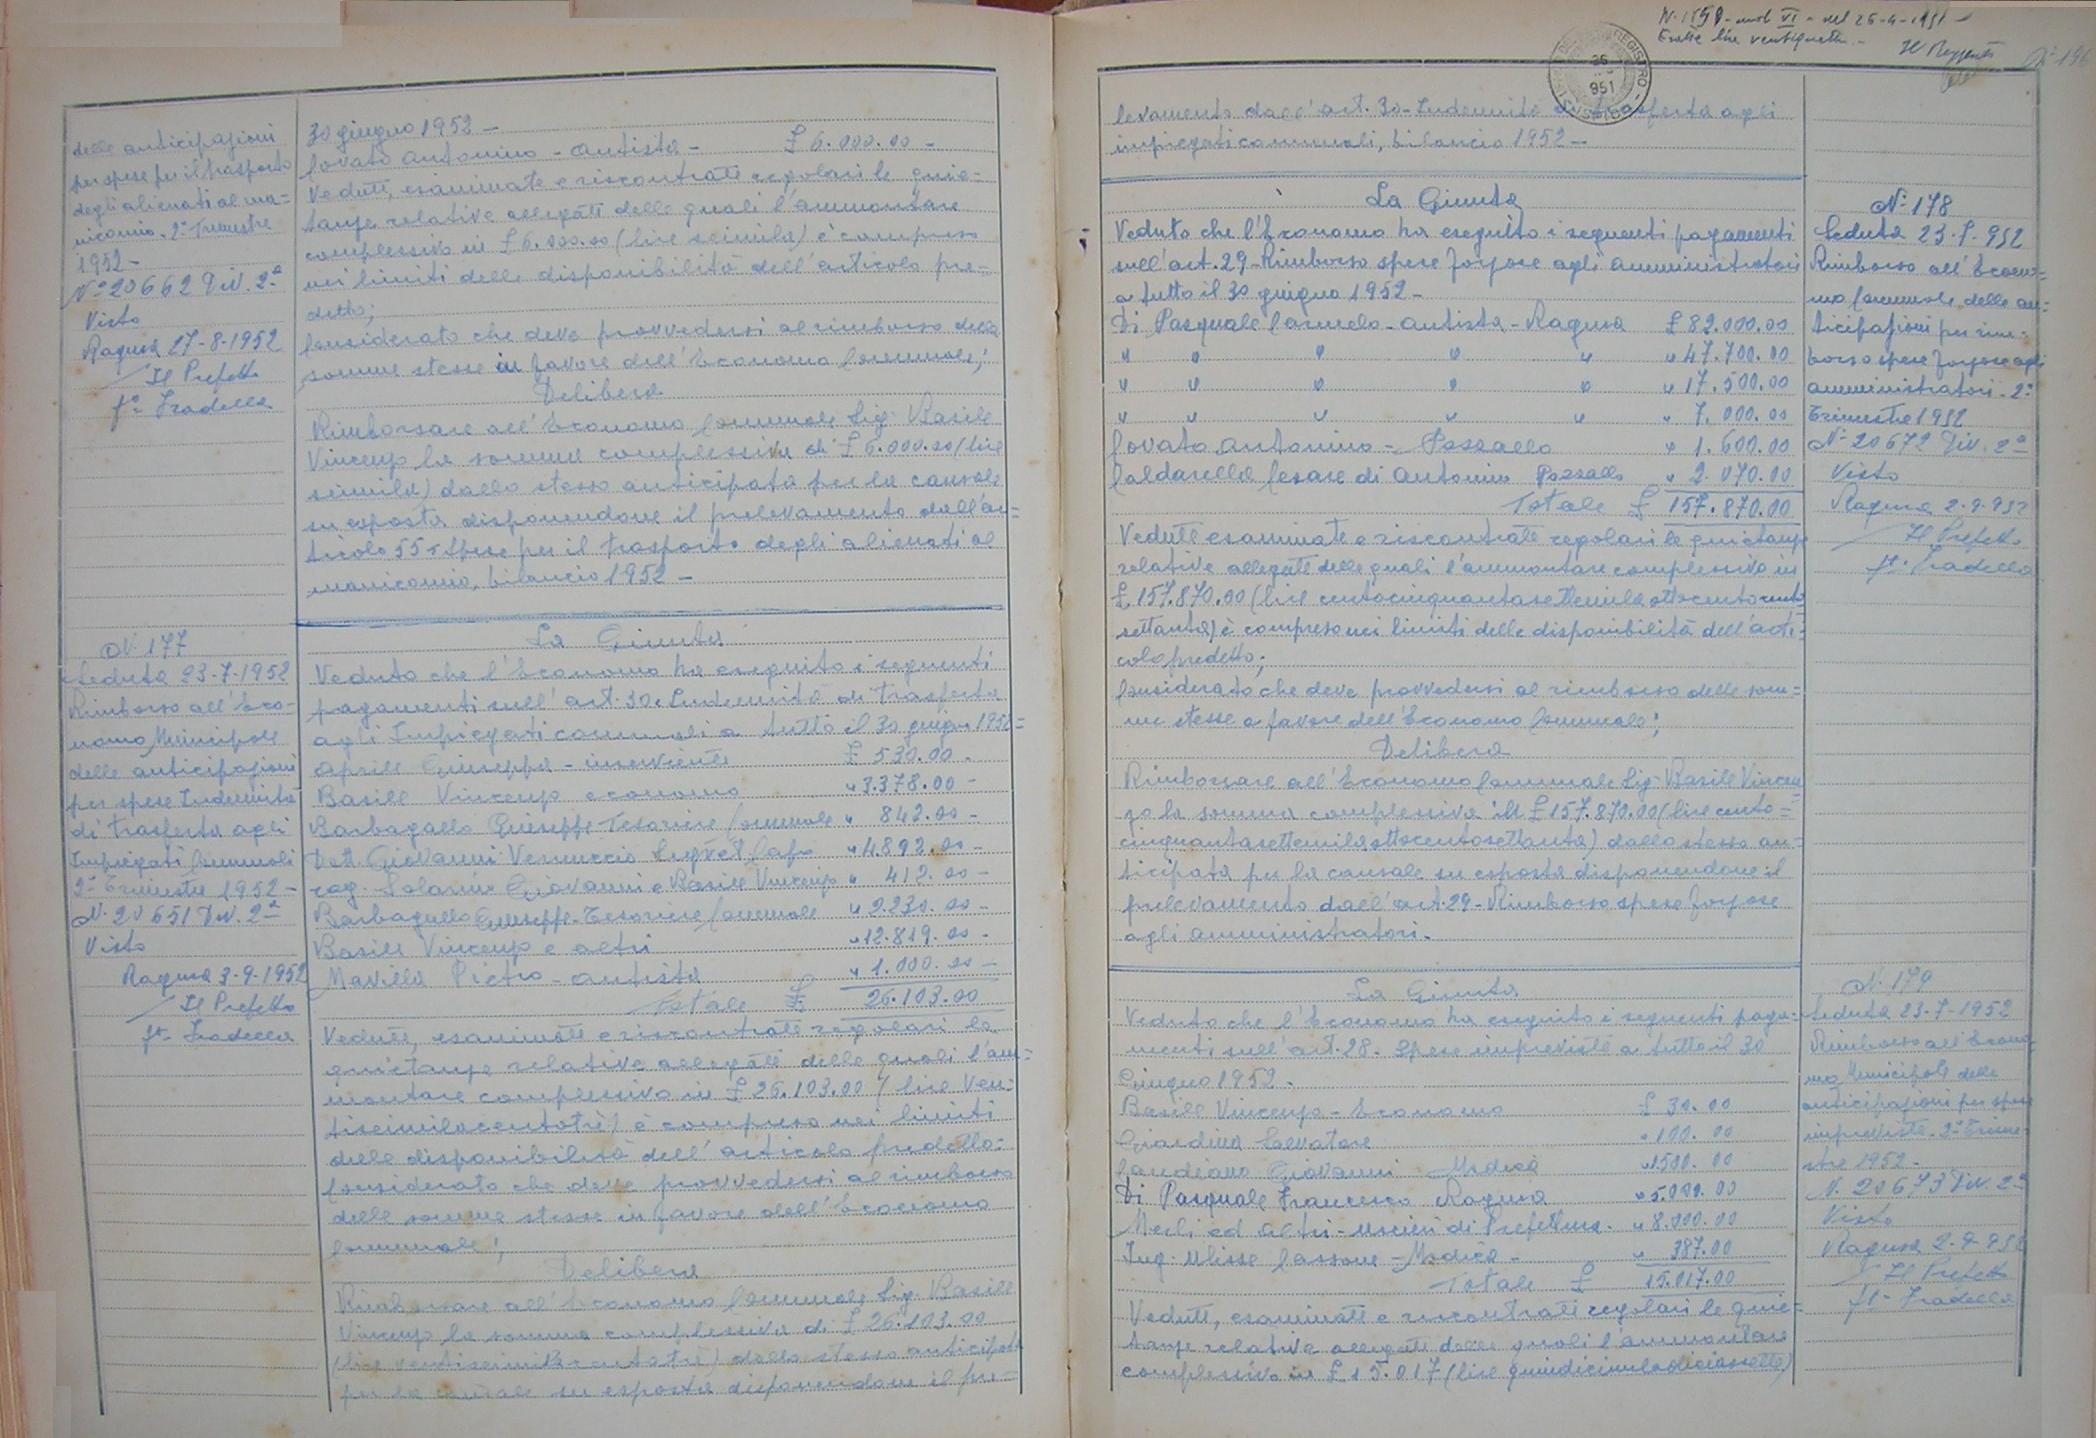 delle anticipazioni
per spese per il trasporto
degli alienati al ma=
nicomio. 2° Trimestre
1952-
N° 20662 Div. 2ª
Visto
Ragusa 27-8-1952
Il Prefetto
f°-
30 giugno 1952-
Lovato Antonino - Autista - £ 6.000.00 -
Vedute, esaminate e riscontrate regolari le quie-
tanze relative allegate delle quali l'ammontare
complessivo in £ 6.000.00 (lire seimila) è compreso
nei limiti delle disponibilità dell'articolo pre-
detto;
Considerato che deve provvedersi al rimborso delle
somme stesse in favore dell'Economo Comunale;
Delibera
Rimborsare all'Economo Comunale Sig. Basile
Vincenzo la somma complessiva di £ 6.000.00 (lire
seimila) dallo stesso anticipata per la causale
su esposta disponendone il prelevamento dall'ar=
ticolo 55 - Spese per il trasporto degli alienati al
manicomio, bilancio 1952 -
N. 177
Seduta 23-7-1952
Rimborso all'Eco-
nomo Municipale
delle anticipazioni
per spese Indennità
di trasferta agli
Impiegati Comunali
2° Trimestre 1952 -
N. 20651 Div. 2ª
Visto
Ragusa 3-9-1952
Il Prefetto
f°-
La Giunta
Veduto che l'Economo ha eseguito i seguenti
pagamenti sull'art. 30. Indennità di trasferta
agli Impiegati comunali a tutto il 30 giugno 1952=
Aprile Giuseppe - inserviente £ 530.00 -
Basile Vincenzo economo " 3.378.00 -
Barbagallo Giuseppe Tesoriere Comunale " 842.00 -
Dott. Giovanni Vernuccio " 4.892.00 -
rag. Giovanni e Basile Vincenzo " 412.00 -
Barbagallo Giuseppe - Tesoriere Comunale " 2.230.00 -
Basile Vincenzo e altri " 12.819.00 -
Mavilla Pietro - autista " 1.000.00 -
Totale £ 26.103.00
Vedute, esaminate e riscontrate regolari le
quietanze relative allegate delle quali l'am=
montare complessivo in £ 26.103.00 (lire ven=
tiseimilacentotrè) è compreso nei limiti
delle disponibilità dell'articolo predetto:
Considerato che deve provvedersi al rimborso
delle somme stesse in favore dell'Economo
Comunale;
Delibera
Rimborsare all'Economo Comunale Sig. Basile
Vincenzo la somma complessiva di £ 26.103.00
(lire ventiseimilacentotrè) dallo stesso anticipata
per la causale su esposta disponendone il pre=
del 26-4-1951-
Esatte lire
REGISTRO
26
951
levamento dall'art. 30 - Indennità di trasferta agli
impiegati comunali, bilancio 1952 -
La Giunta
Veduto che l'Economo ha eseguito i seguenti pagamenti
sull'art. 29 - Rimborso spese forzose agli amministratori
a tutto il 30 giugno 1952 -
Di Pasquale Carmelo - autista - Ragusa £ 82.000.00
" " " " " " 47.700.00
" " " " " " 17.500.00
" " " " " " 7.000.00
Lovato Antonino - Pozzallo " 1.600.00
Caldarella Cesare di Antonino Pozzallo " 2.070.00
Totale £ 157.870.00
Vedute esaminate e riscontrate regolari le quietanze
relative allegate delle quali l'ammontare complessivo in
£ 157.870.00 (lire centocinquantasettemilaottocento
settanta) è compreso nei limiti delle disponibilità dell'arti=
colo predetto;
Considerato che deve provvedersi al rimborso delle som=
me stesse a favore dell'Economo Comunale;
Delibera
Rimborsare all'Economo Comunale Sig. Basile Vincen
zo la somma complessiva di £ 157.870.00 (lire cento=
cinquantasettemilaottocentosettanta) dallo stesso an=
ticipata per la causale su esposta disponendone il
prelevamento dall'art. 29 - Rimborso spese forzose
agli amministratori.
N° 178
Seduta 23-7-952
Rimborso all'Econo=
mo Comunale delle an=
ticipazioni per rim=
borso spese forzose agli
amministratori - 2°
Trimestre 1952
N° 20672 Div. 2ª
Visto
Ragusa 2-9-952
Il Prefetto
f°-
La Giunta
Veduto che l'Economo ha eseguito i seguenti paga-
menti sull'art. 28. Spese impreviste a tutto il 30
Giugno 1952.
Basile Vincenzo - Economo £ 30.00
Giardina Salvatore " 100.00
Candiano Giovanni Modica " 1500.00
Di Pasquale Francesco Ragusa " 5.000.00
Merli ed altri - uscieri di Prefettura. " 8.000.00
Ing. Ulisse Cassone - Modica - " 387.00
Totale £ 15.017.00
Vedute, esaminate e riscontrate regolari le quie=
tanze relative allegate delle quali l'ammontare
complessivo in £ 15.017 (lire quindicimiladiciassette)
N. 179
Seduta 23-7-1952
Rimborso all'Econo
mo Municipale delle
anticipazioni per spese
impreviste. 2° Trime-
stre 1952 -
N. 20673 Div. 2ª
Visto
Ragusa 2-9-952
Il Prefetto
f°-